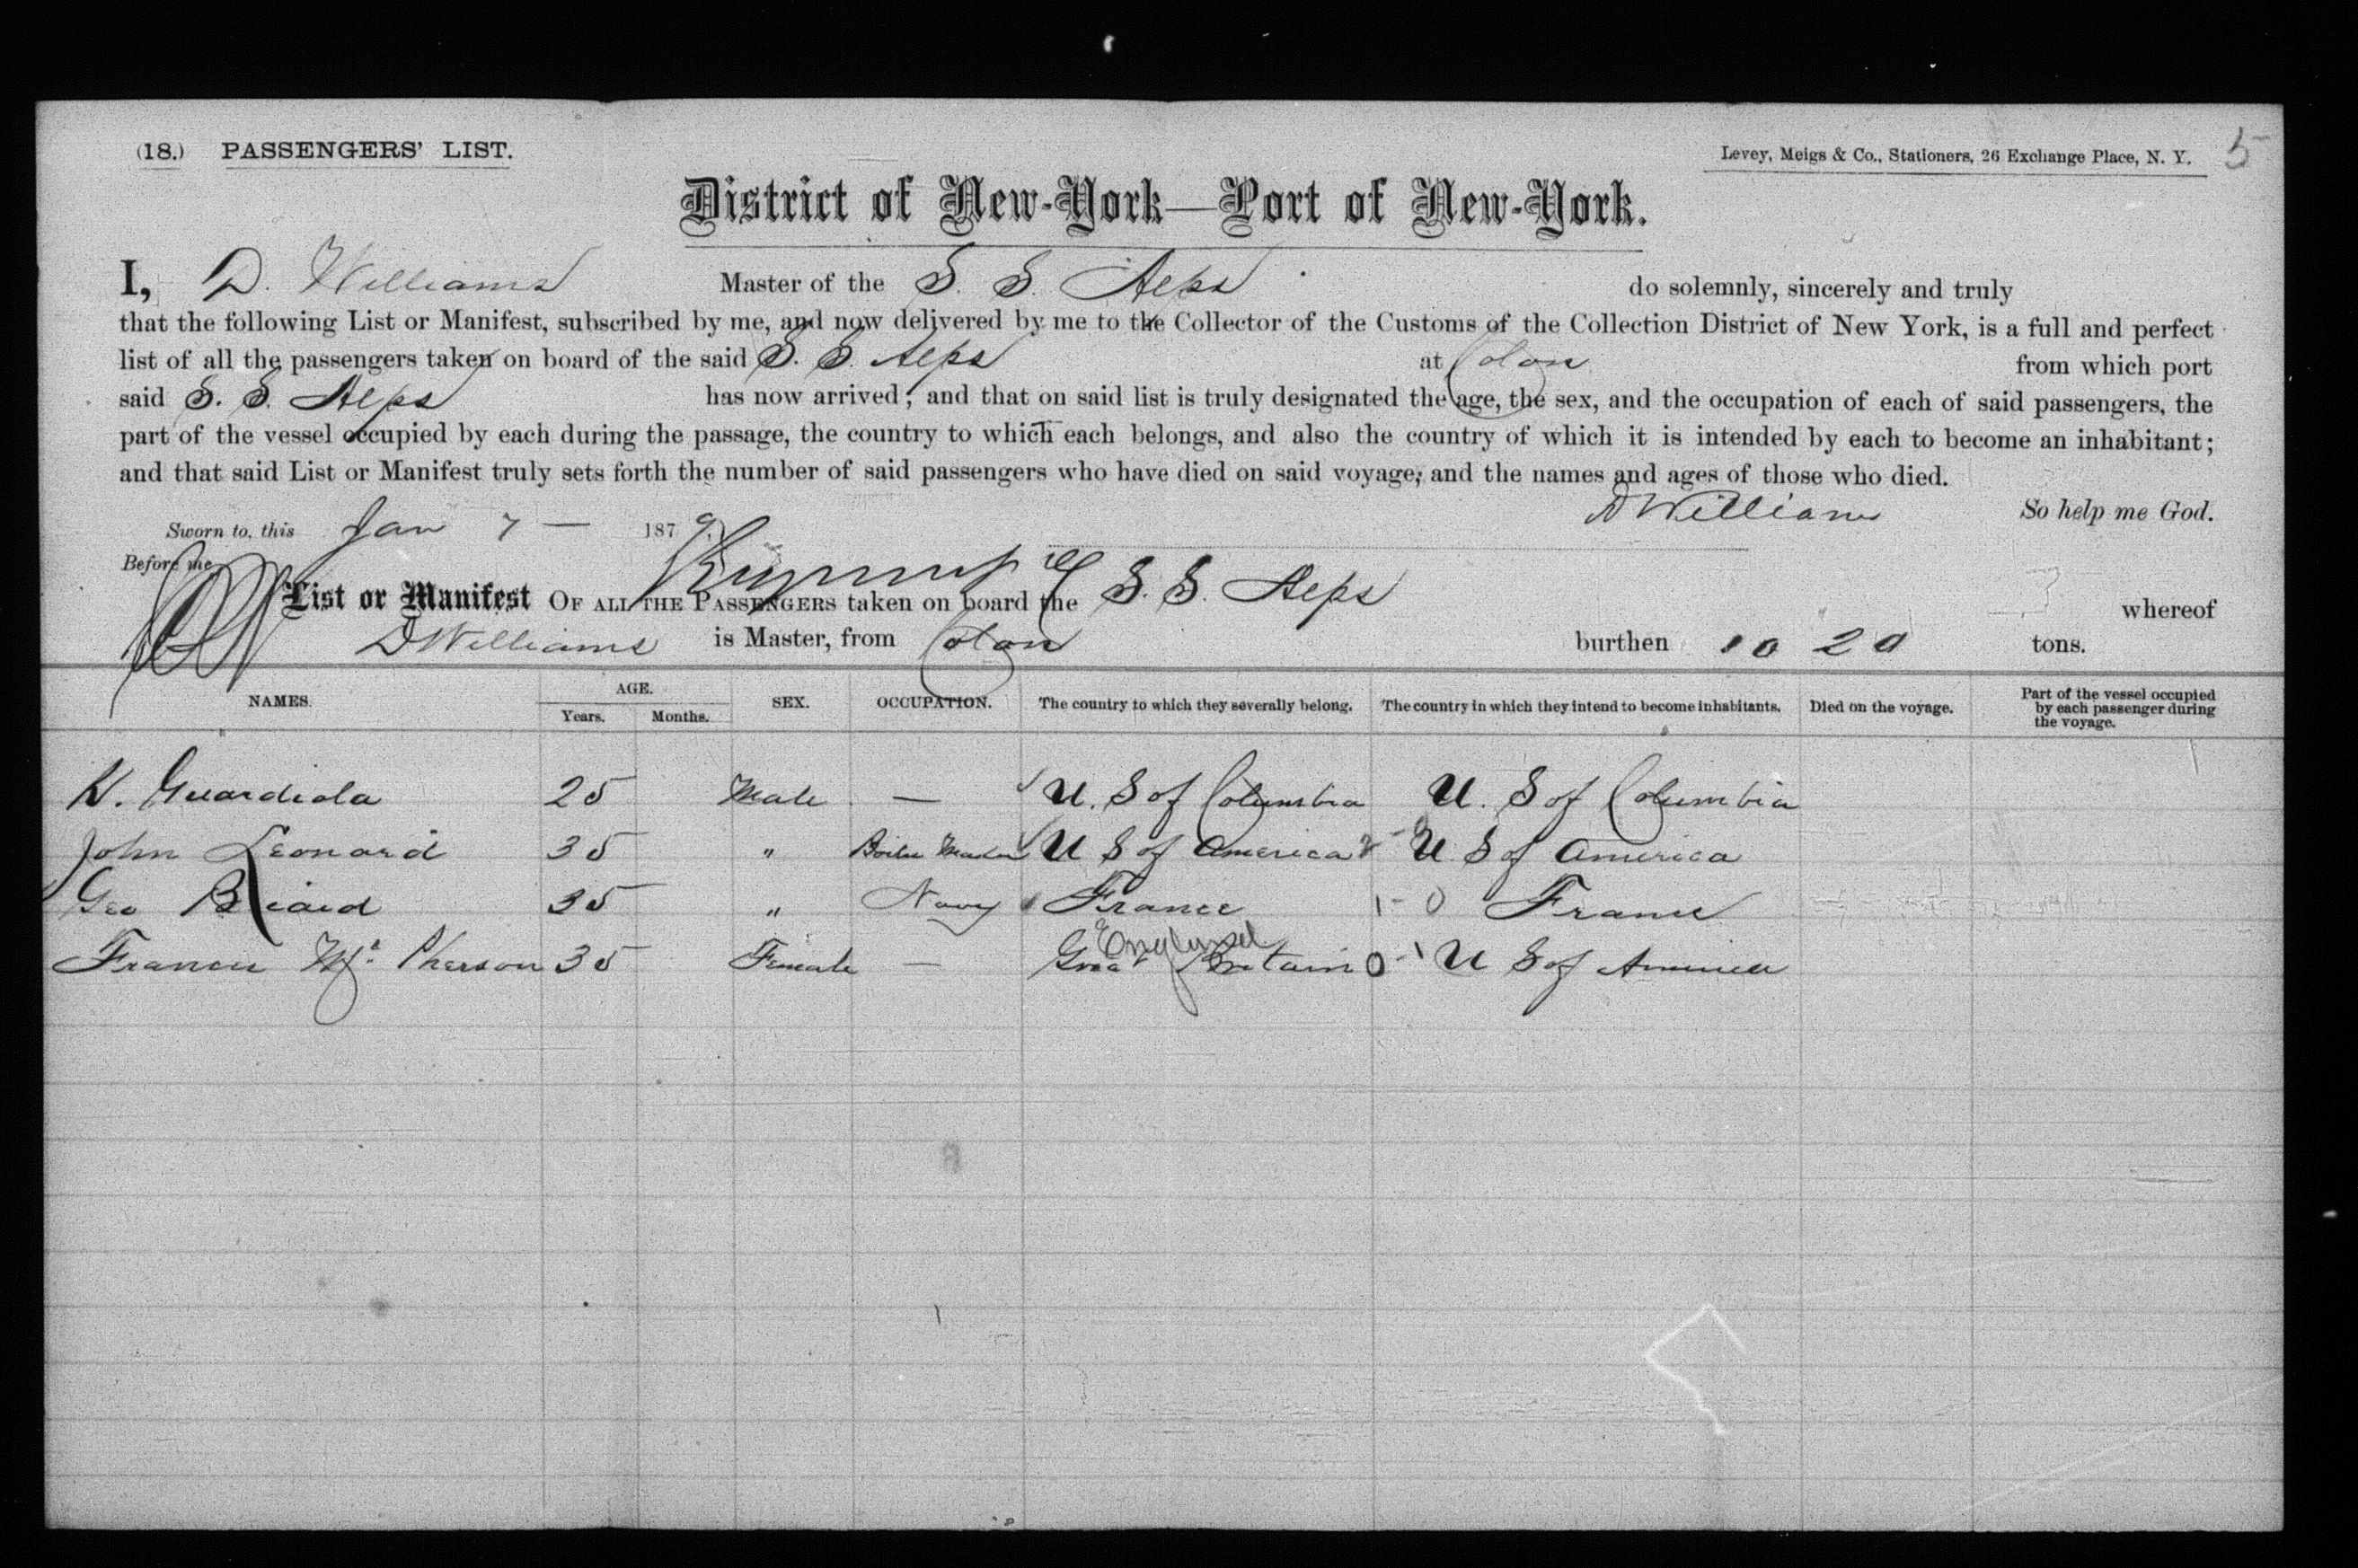 (18.) PASSENGERS' LIST.
Levey, Meigs & Co., Stationers, 26 Exchange Place, N. Y. 5
District of New-York—Port of New-York.
I, D. Williams Master of the S. S. Alps do solemnly, sincerely and truly
that the following List or Manifest, subscribed by me, and now delivered by me to the Collector of the Customs of the Collection District of New York, is a full and perfect
list of all the passengers taken on board of the said S. S. Alps at Colon from which port
said S. S. Alps has now arrived; and that on said list is truly designated the age, the sex, and the occupation of each of said passengers, the
part of the vessel occupied by each during the passage, the country to which each belongs, and also the country of which it is intended by each to become an inhabitant;
and that said List or Manifest truly sets forth the number of said passengers who have died on said voyage, and the names and ages of those who died.
D Williams So help me God.
Sworn to, this Jan 7 — 1879
Before me
List or Manifest OF ALL THE PASSENGERS taken on board the S. S. Alps whereof
D Williams is Master, from Colon burthen 1020 tons.
NAMES. AGE. Years. Months. SEX. OCCUPATION. The country to which they severally belong. The country in which they intend to become inhabitants. Died on the voyage. Part of the vessel occupied by each passenger during the voyage.
Guardiola 25 Male — U. S of Columbia U. S of Columbia
John Leonard 35 " Boiler Maker U S of America U S of America
Geo 35 " Navy France 1-0 France
England
Frances Mc Pherson 35 Female — Great Britain 0-1 U S of America